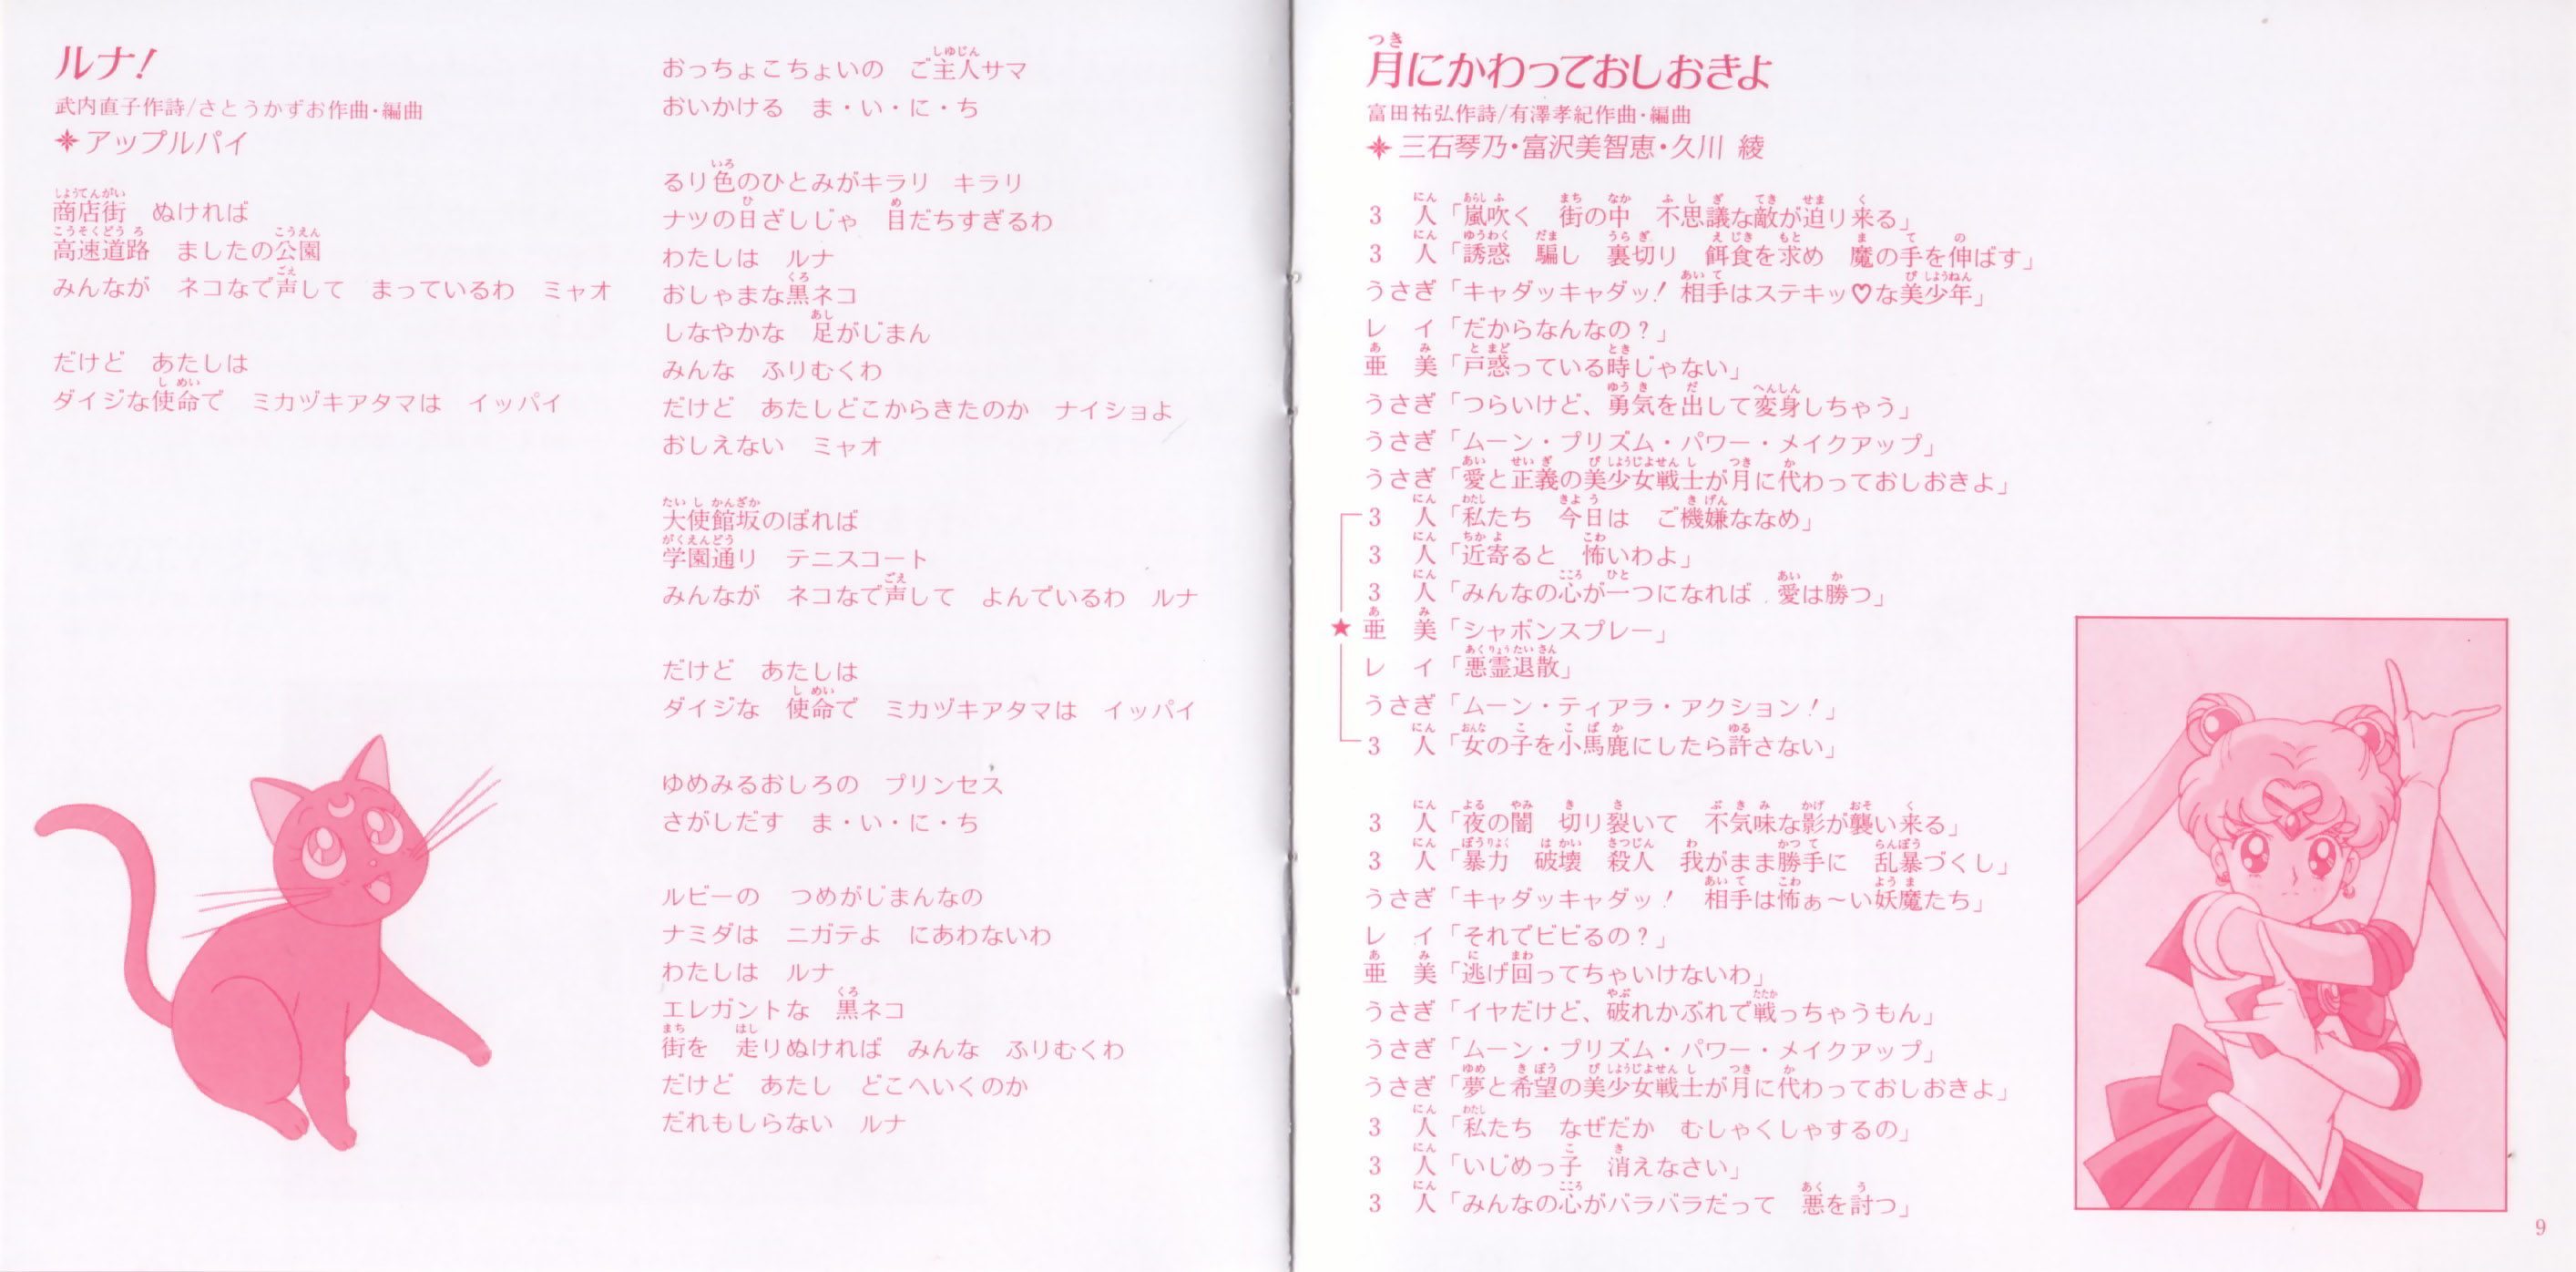 ルナ!
武内直子作詩/さとうかずお作曲・編曲
アップルパイ
商店街　ぬければ
高速道路　ましたの公園
みんなが　ネコなで声して　まっているわ　ミャオ
だけど　あたしは
ダイジな使命で　ミカヅキアタマは　イッパイ
おっちょこちょいの　ご主人サマ
おいかける　ま・い・に・ち
るり色のひとみがキラリ　キラリ
ナツの日ざしじゃ　目だちすぎるわ
わたしは　ルナ
おしゃまな黒ネコ
しなやかな　足がじまん
みんな　ふりむくわ
だけど　あたしどこからきたのか　ナイショよ
おしえない　ミャオ
大使館坂のぼれば
学園通り　テニスコート
みんなが　ネコなで声して　よんでいるわ　ルナ
だけど　あたしは
ダイジな　使命で　ミカヅキアタマは　イッパイ
ゆめみるおしろの　プリンセス
さがしだす　ま・い・に・ち
ルビーの　つめがじまんなの
ナミダは　ニガテよ　にあわないわ
わたしは　ルナ
エレガントな　黒ネコ
街を　走りぬければ　みんな　ふりむくわ
だけど　あたし　どこへいくのか
だれもしらない　ルナ
月にかわっておしおきよ
富田祐弘作詩/有澤孝紀作曲・編曲
三石琴乃・富沢美智恵・久川 綾
3　人「嵐吹く　街の中　不思議な敵が迫り来る」
3　人「誘惑　騙し　裏切り　餌食を求め　魔の手を伸ばす」
うさぎ「キャダッキャダッ! 相手はステキッ♡な美少年」
レ　イ「だからなんなの？」
亜　美「戸惑っている時じゃない」
うさぎ「つらいけど、勇気を出して変身しちゃう」
うさぎ「ムーン・プリズム・パワー・メイクアップ」
うさぎ「愛と正義の美少女戦士が月に代わっておしおきよ」
3　人「私たち　今日は　ご機嫌ななめ」
3　人「近寄ると　怖いわよ」
3　人「みんなの心が一つになれば　愛は勝つ」
★亜　美「シャボンスプレー」
レ　イ「悪霊退散」
うさぎ「ムーン・ティアラ・アクション!」
3　人「女の子を小馬鹿にしたら許さない」
3　人「夜の闇　切り裂いて　不気味な影が襲い来る」
3　人「暴力　破壊　殺人　我がまま勝手に　乱暴づくし」
うさぎ「キャダッキャダッ!　相手は怖ぁ〜い妖魔たち」
レ　イ「それでビビるの？」
亜　美「逃げ回ってちゃいけないわ」
うさぎ「イヤだけど、破れかぶれで戦っちゃうもん」
うさぎ「ムーン・プリズム・パワー・メイクアップ」
うさぎ「夢と希望の美少女戦士が月に代わっておしおきよ」
3　人「私たち　なぜだか　むしゃくしゃするの」
3　人「いじめっ子　消えなさい」
3　人「みんなの心がバラバラだって　悪を討つ」
9